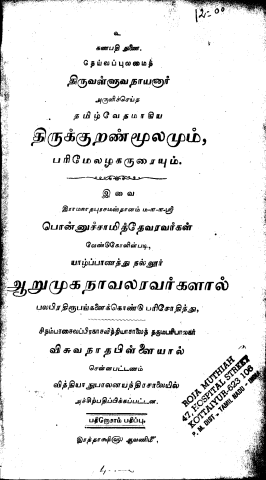 12-00
உ
கணபதி துணை.
தெய்வப்புலமைத்
திருவள்ளுவநாயனார்
அருளிச்செய்த
தமிழ்வேதமாகிய
திருக்குறண்மூலமும்,
பரிமேலழகருரையும்.
இவை
இராமநாதபுரசமஸ்தானம் ம-ள-ள-ஸ்ரீ
பொன்னுச்சாமித்தேவரவர்கள்
வேண்டுகோளின்படி,
யாழ்ப்பாணத்து நல்லூர்
ஆறுமுகநாவலரவர்களால்
பலபிரதிரூபங்களைக்கொண்டு பரிசோதித்து,
சிதம்பரசைவப்பிரகாசவித்தியாசாலைத் தருமபரிபாலகர்
விசுவநாதபிள்ளையால்
சென்னபட்டணம்
வித்தியாநுபாலனயந்திரசாலையில்
அச்சிற்பதிப்பிக்கப்பட்டன.
பதினோராம் பதிப்பு.
இரத்தாக்ஷி௵ ஆவணி௴
ROJA MUTHIAH
47, HOSPITAL STREET
KOTTAIYUR-623 106
P. M. DIST - TAMIL NADU - INDIA